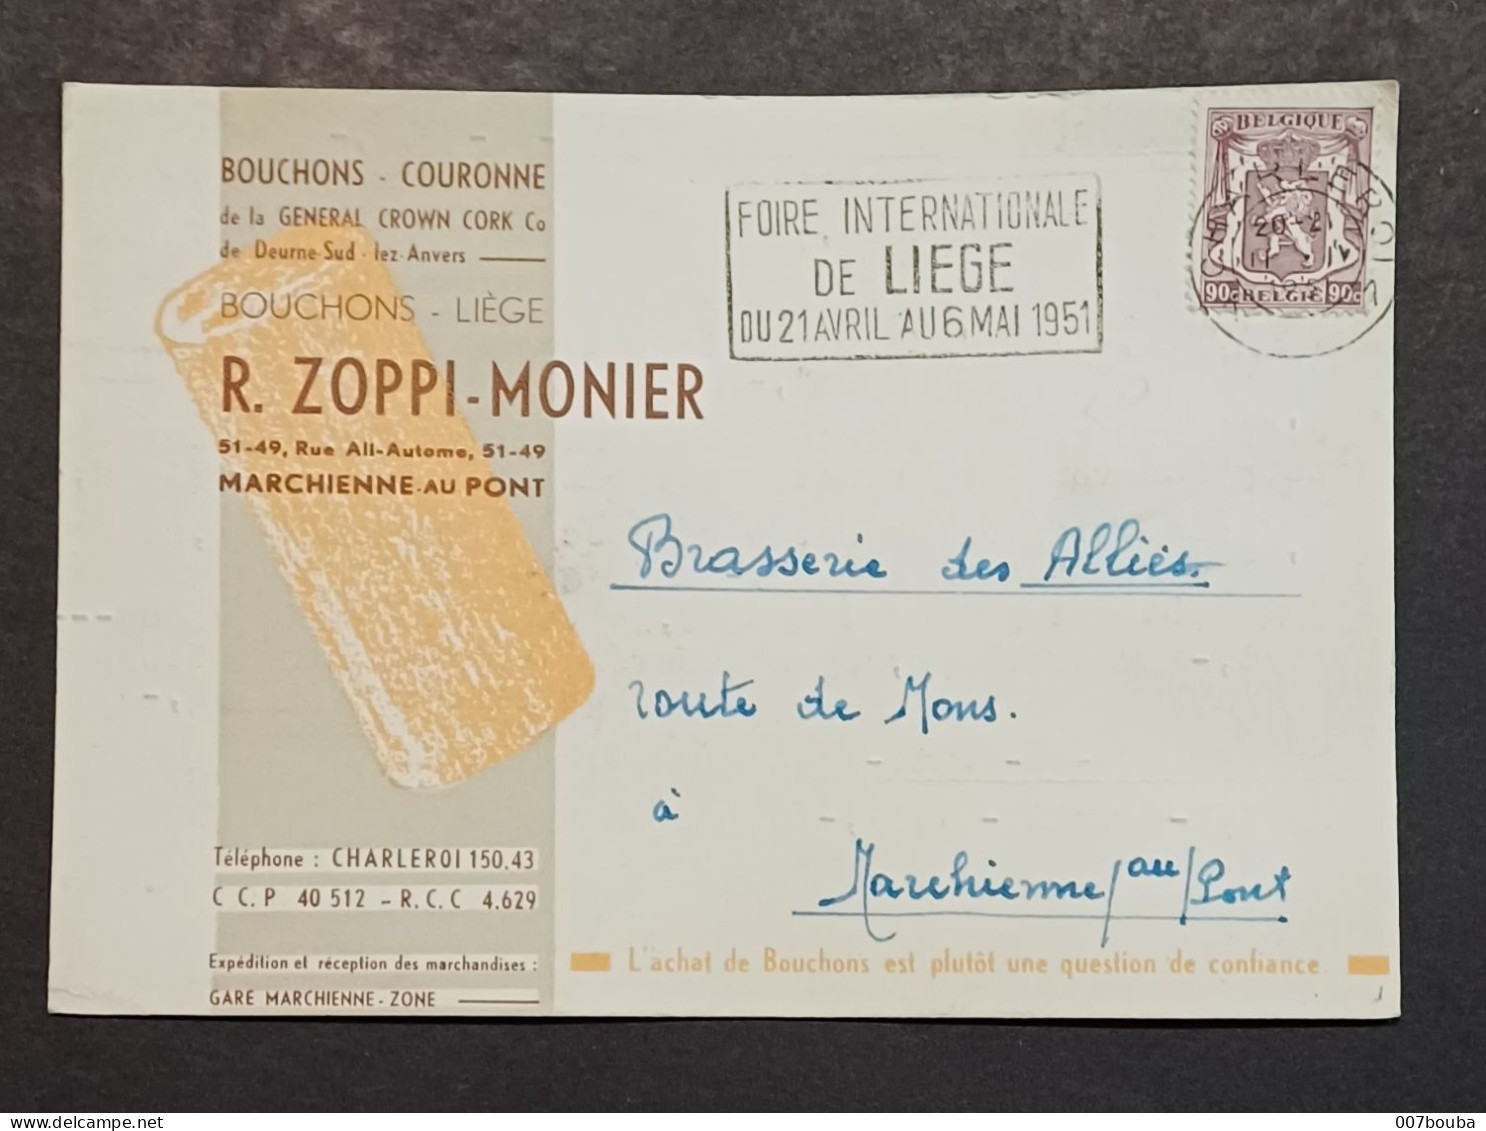 BOUCHONS - COURONNE
de la GENERAL CROWN CORK Co
de Deurne-Sud-lez-Anvers
BOUCHONS - LIÈGE
R. ZOPPI-MONIER
51-49, Rue All-Automo, 51-49
MARCHIENNE-AU PONT
Téléphone : CHARLEROI 150.43
C C. P 40 512 - R. C. C 4.629
Expédition et réception des marchandises :
GARE MARCHIENNE - ZONE
FOIRE INTERNATIONALE
DE LIEGE
DU 21 AVRIL AU 6 MAI 1951
BELGIQUE
90c BELGIË 90c
CHARLEROI
20-21
Brasserie des Alliés
route de Mons.
à
Marchienne/au/Pont
L'achat de Bouchons est plutôt une question de confiance
007bouba